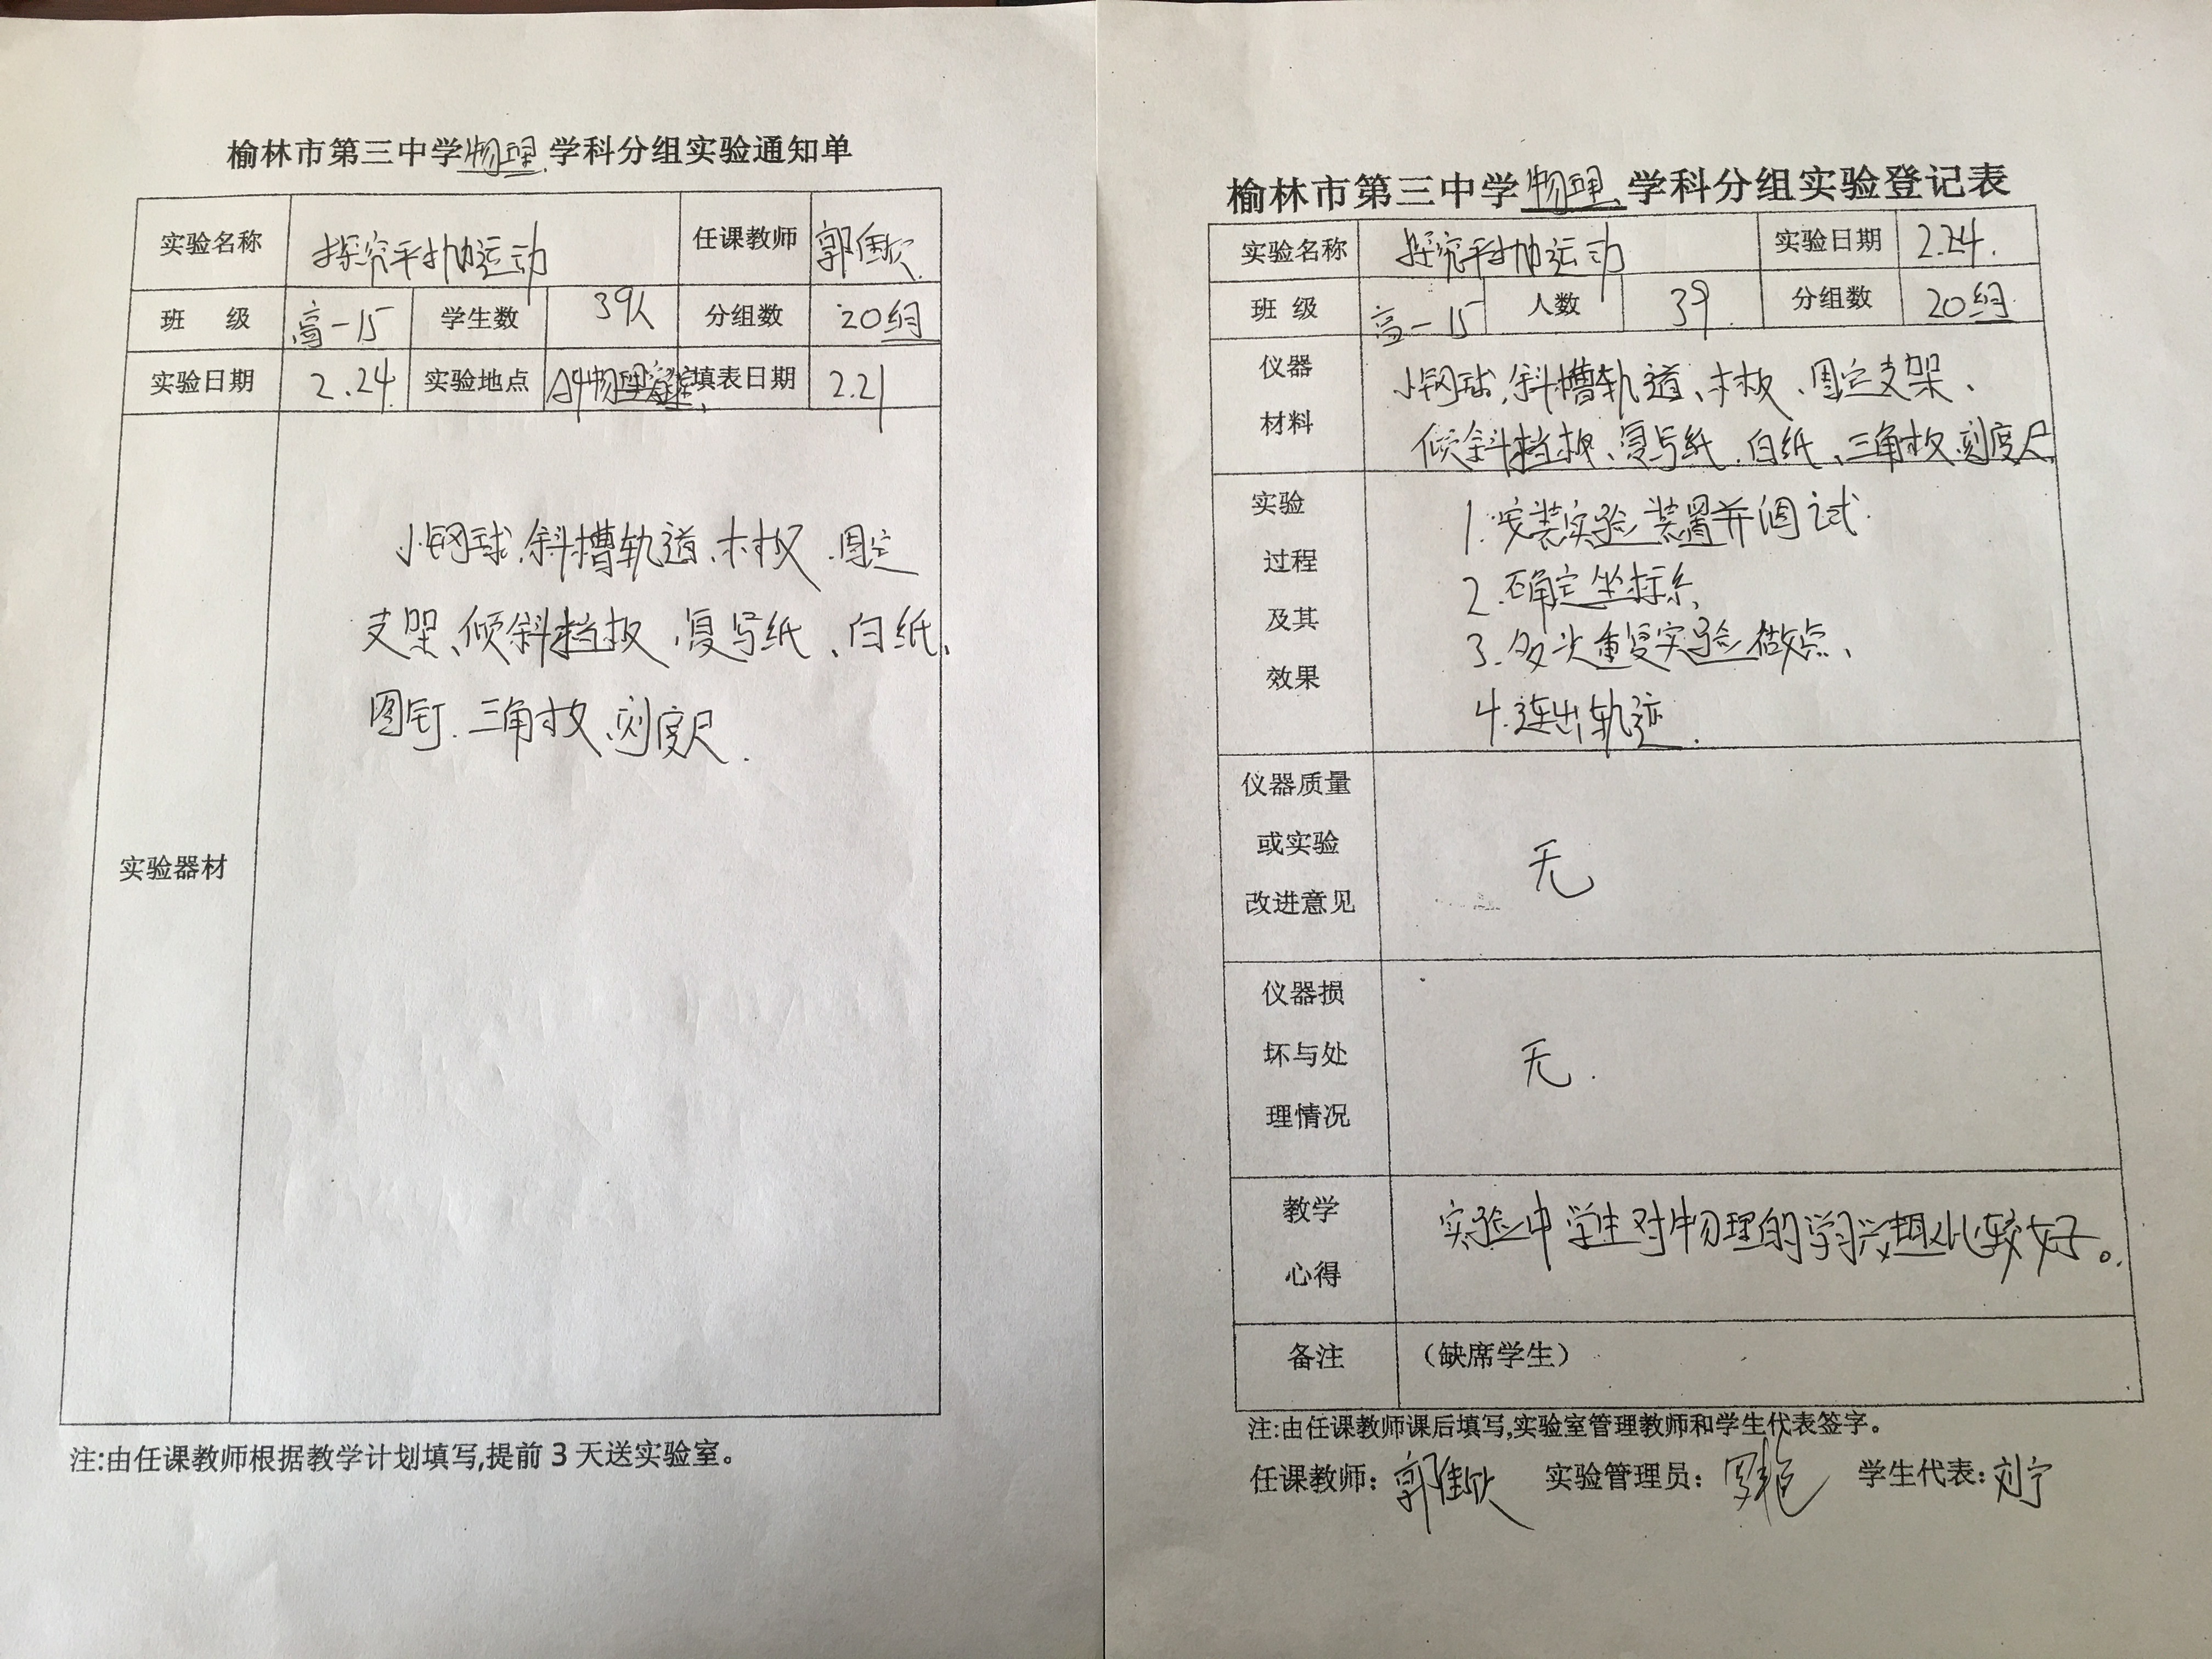 榆林市第三中学物理学科分组实验通知单
实验名称 探究平抛运动 任课教师 郭佳欣
班 级 高一15 学生数 39人 分组数 20组
实验日期 2.24. 实验地点 物理实验室 填表日期 2.21
实验器材
小钢球、斜槽轨道、木板、固定
支架、倾斜挡板、复写纸、白纸、
图钉、三角板、刻度尺.
注:由任课教师根据教学计划填写,提前 3 天送实验室。
榆林市第三中学物理学科分组实验登记表
实验名称 探究平抛运动 实验日期 2.24.
班 级 高一15 人数 39. 分组数 20组
仪器
材料
小钢球、斜槽轨道、木板、固定支架、
倾斜挡板、复写纸、白纸、三角板、刻度尺.
实验
过程
及其
效果
1.安装实验装置并调试.
2.确定坐标系、
3.多次重复实验做点、
4.连出轨迹.
仪器质量
或实验
改进意见
无
仪器损
坏与处
理情况
无.
教学
心得
实验中学生对物理的学习兴趣比较好。
备注 （缺席学生）
注:由任课教师课后填写,实验室管理教师和学生代表签字。
任课教师: 郭佳欣 实验管理员: 学生代表: 刘宁